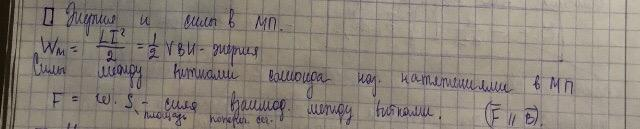 □ Энергия и силы в МП.
Wм = LI²/2 = 1/2 VBH - энергия
Силы между витками соленоида наз. натяжениями в МП
F = w · S - сила взаимод. между витками. (F̄ ∥ B̄)
площадь попереч. сеч.